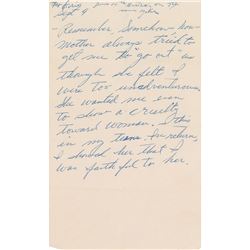 Sept 9
- Remember Somehow how
Mother always tried to
get me to "go out" as
though she felt I
were too unadventurous
she wanted me even
to show a cruelty
toward woman. This
in my teens. In return,
I showed her that I
was faithful to her.